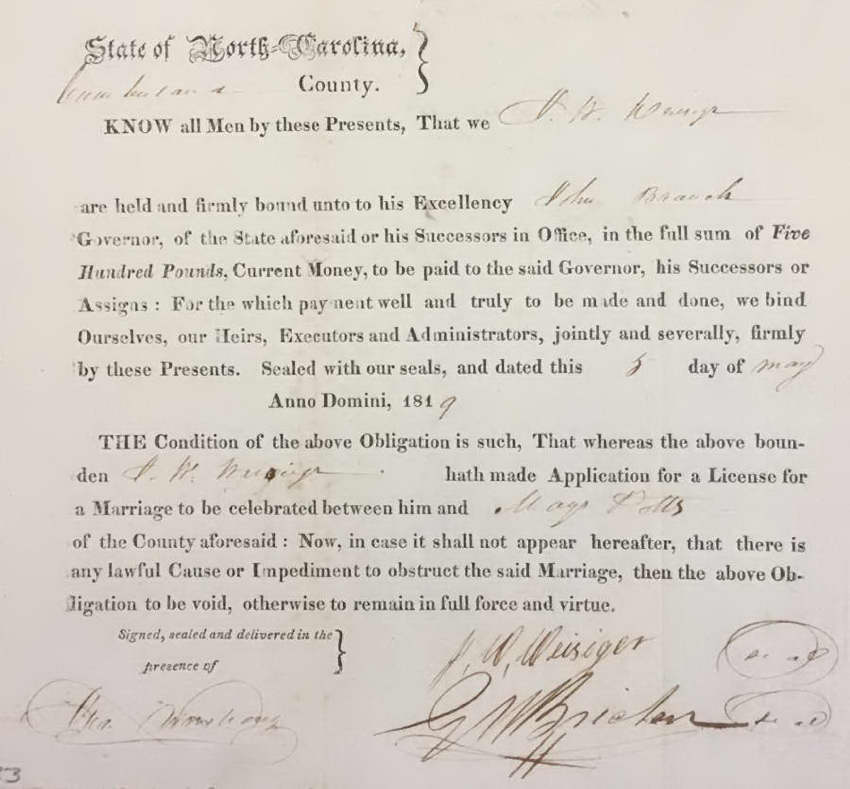 State of North-Carolina,
Cumberland County.
KNOW all Men by these Presents, That we J. W. Weisiger
are held and firmly bound unto to his Excellency John Branch
Governor, of the State aforesaid or his Successors in Office, in the full sum of Five
Hundred Pounds, Current Money, to be paid to the said Governor, his Successors or
Assigns : For the which payment well and truly to be made and done, we bind
Ourselves, our Heirs, Executors and Administrators, jointly and severally, firmly
by these Presents. Sealed with our seals, and dated this 5 day of may
Anno Domini, 1819
THE Condition of the above Obligation is such, That whereas the above boun-
den J. W. Weisiger hath made Application for a License for
a Marriage to be celebrated between him and Potts
of the County aforesaid : Now, in case it shall not appear hereafter, that there is
any lawful Cause or Impediment to obstruct the said Marriage, then the above Ob-
ligation to be void, otherwise to remain in full force and virtue.
Signed, sealed and delivered in the
presence of
J. W. Weisiger seal
seal
Armstrong